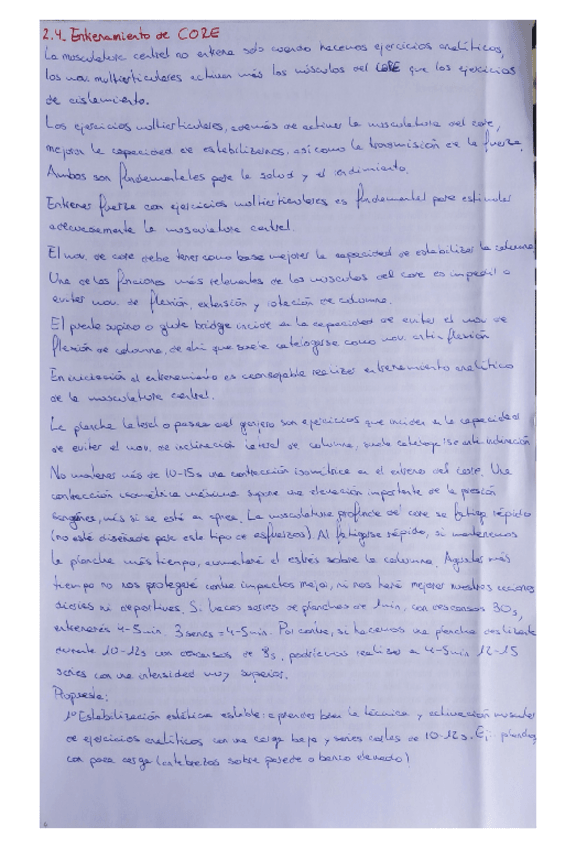 2.4. Entrenamiento de CORE
La musculatura central no entrena solo cuando hacemos ejercicios analíticos,
los mov. multiarticulares activan más los músculos del CORE que los ejercicios
de aislamiento.
Los ejercicios multiarticulares, además de activar la musculatura del core,
mejoran la capacidad de estabilizarnos, así como la transmisión de la fuerza.
Ambos son fundamentales para la salud y el rendimiento.
Entrenar fuerza con ejercicios multiarticulares es fundamental para estimular
adecuadamente la musculatura central.
El mov. de core debe tener como base mejorar la capacidad de estabilizar la columna
Una de las funciones más relevantes de los músculos del core es impedir o
evitar mov. de flexión, extensión y rotación de columna.
El puente supino o glute bridge incide en la capacidad de evitar el mov de
flexión de columna, de ahí que suele catalogarse como mov. anti flexión
En iniciación al entrenamiento es aconsejable realizar entrenamiento analítico
de la musculatura central.
La plancha lateral o paseo del granjero son ejercicios que inciden en la capacidad
de evitar el mov. de inclinación lateral de columna, suele catalogarse anti inclinación
No mantener más de 10-15s una contracción isométrica en el entreno del core. Una
contracción isométrica máxima supone una elevación importante de la presión
sangínea, más si se está en apnea. La musculatura profunda del core se fatiga rápido
(no está diseñada para este tipo de esfuerzos) Al fatigarse rápido, si mantenemos
la plancha más tiempo, aumentará el estrés sobre la columna. Aguantar más
tiempo no nos protegerá contra impactos mejor, ni nos hará mejorar nuestras acciones
diarias ni deportivas. Si haces series de planchas de 1min, con descansos 30s,
entrenarás 4-5min. 3 series = 4-5min. Por contra, si hacemos una plancha deslizante
durante 10-12s con descansos de 8s, podríamos realizar en 4-5min 12-15
series con una intensidad muy superior.
Propuesta:
1º Estabilización estática estable: aprender bien la técnica y activación muscular
de ejercicios analíticos con una carga baja y series cortas de 10-12s. Ej: planchas
con poca carga (antebrazos sobre pared o banco elevado)